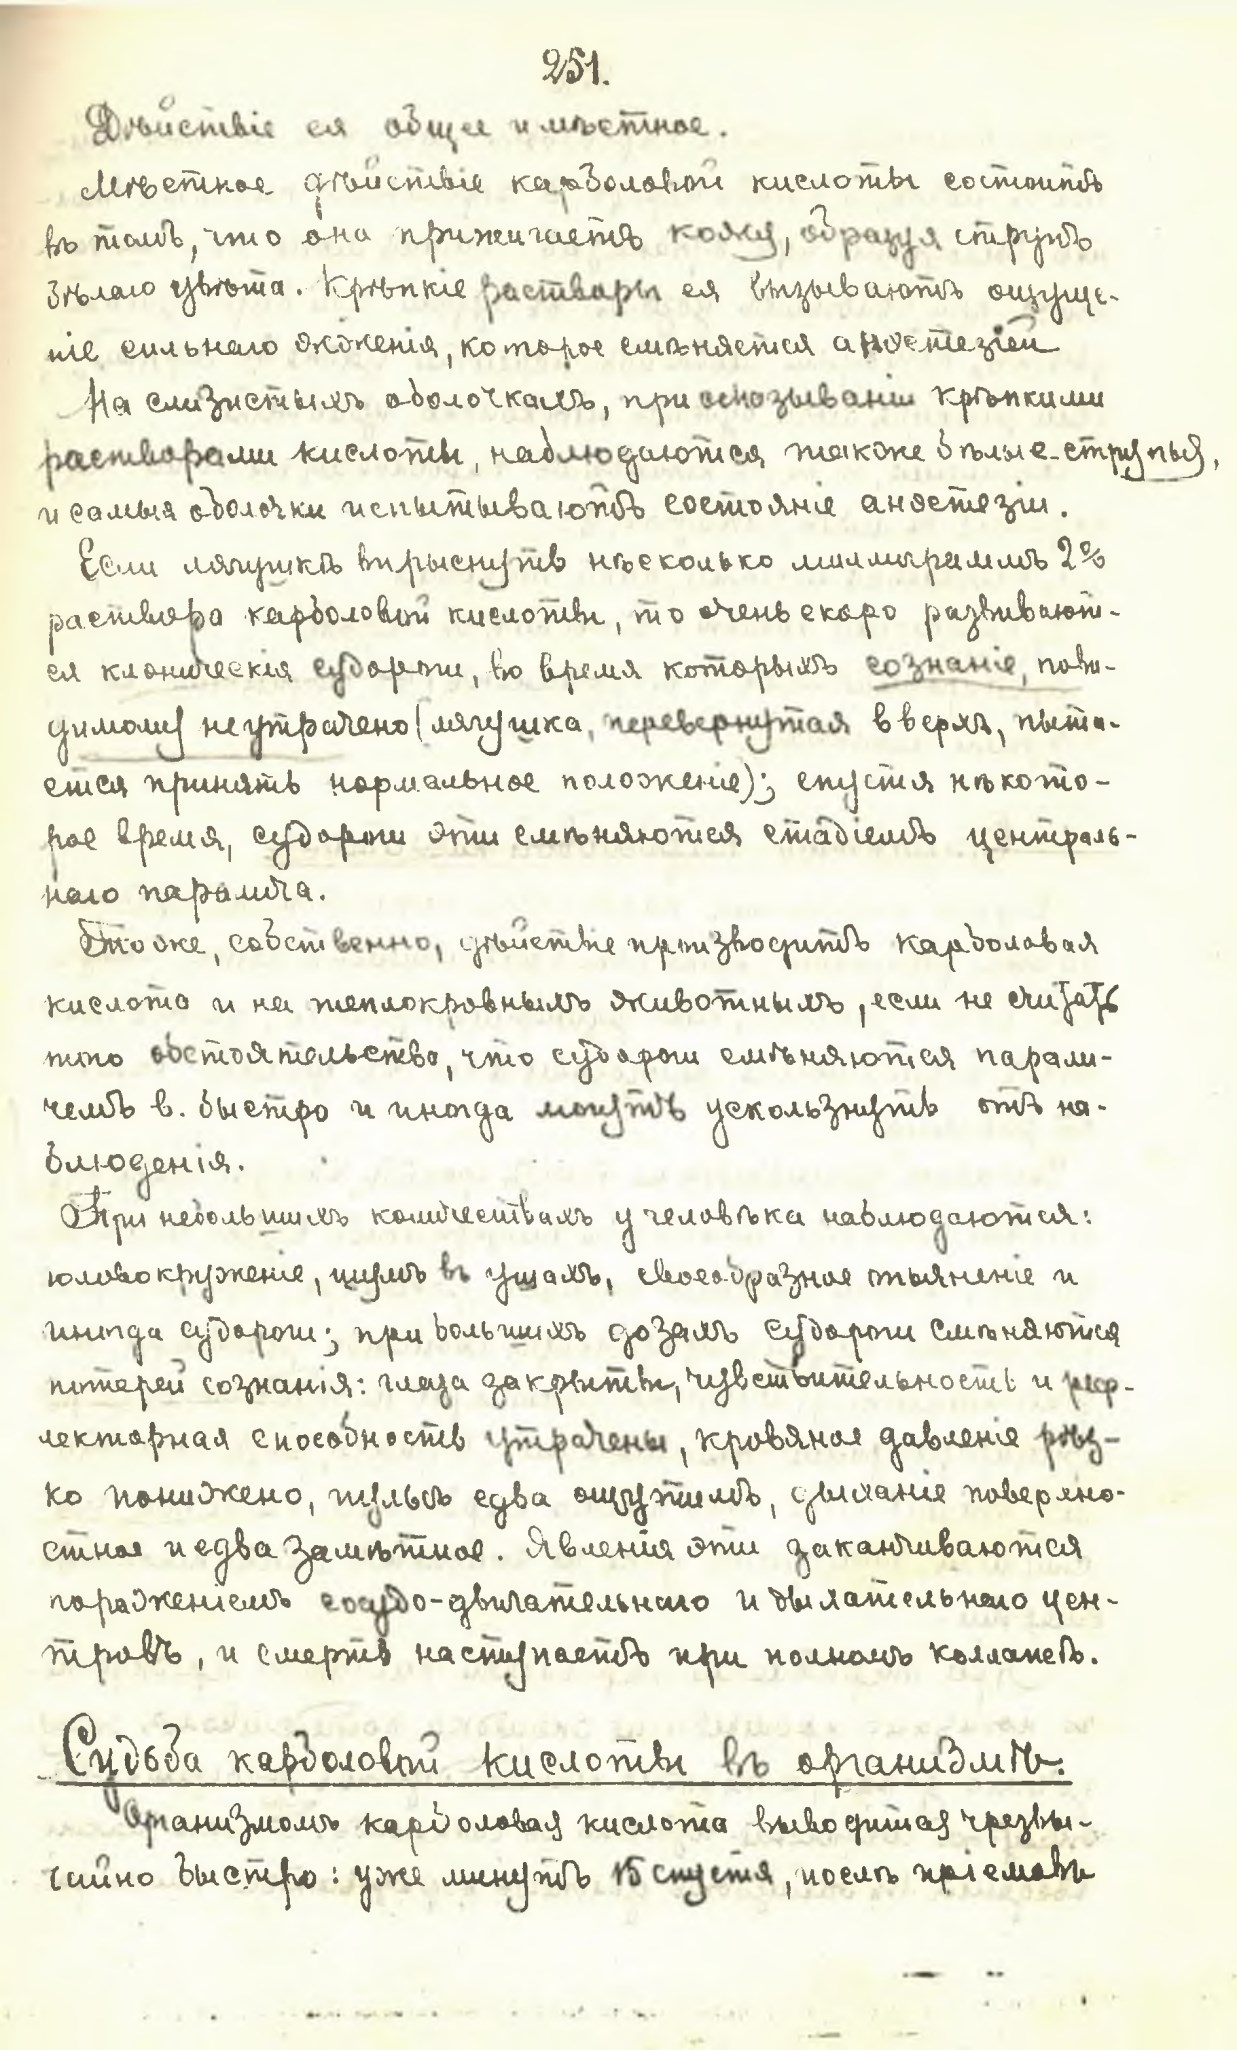 251.
Дѣйствіе ея общее и мѣстное.
Мѣстное дѣйствіе карболовой кислоты состоитъ
въ томъ, что она прижигаетъ кожу, образуя струпъ
бѣлаго цвѣта. Крѣпкіе растворы ея вызываютъ ощуще-
ніе сильнаго жженія, которое смѣняется анэстезіей
На слизистыхъ оболочкахъ, при смазываніи крѣпкими
растворами кислоты, наблюдаются также бѣлые струпья,
и самыя оболочки испытываютъ состояніе анэстезіи.
Если лягушкѣ впрыснуть нѣсколько миллиграммъ 2%
раствора карболовой кислоты, то очень скоро развивают-
ся клоническія судороги, во время которыхъ сознаніе, пови-
димому не утрачено (лягушка, перевернутая вверхъ, пыта-
ется принять нормальное положеніе); спустя нѣкото-
рое время, судороги эти смѣняются стадіемъ централь-
наго паралича.
Тоже, собственно, дѣйствіе производитъ карболовая
кислота и на теплокровныхъ животныхъ, если не считать
того обстоятельства, что судороги смѣняются парали-
чемъ в. быстро и иногда могутъ ускользнуть отъ на-
блюденія.
При небольшихъ количествахъ у человѣка наблюдаются:
головокруженіе, шумъ въ ушахъ, своеобразное опьяненіе и
иногда судороги; при большихъ дозахъ судороги смѣняются
потерей сознанія: глаза закрыты, чувствительность и реф-
лекторная способность утрачены, кровяное давленіе рѣз-
ко понижено, пульсъ едва ощутимъ, дыханіе поверхно-
стное и едва замѣтное. Явленія эти заканчиваются
пораженіемъ сосудо-двигательнаго и дыхательнаго цен-
тровъ, и смерть наступаетъ при полномъ коллапсѣ.
Судьба карболовой кислоты въ организмѣ.
Организмомъ карболовая кислота выводится чрезвы-
чайно быстро: уже минутъ 15 спустя, послѣ пріемовъ